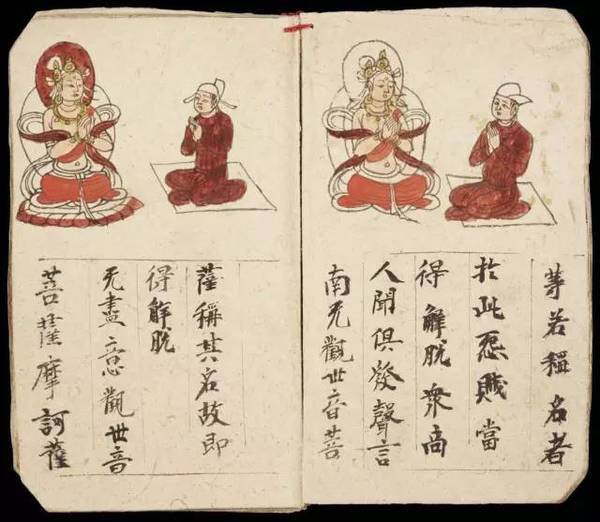 等若稱名者
扵此怨賊當
得解脱衆商
人聞俱發聲言
南无觀世音菩
薩稱其名故即
得解脱
无盡意觀世音
菩薩摩訶薩